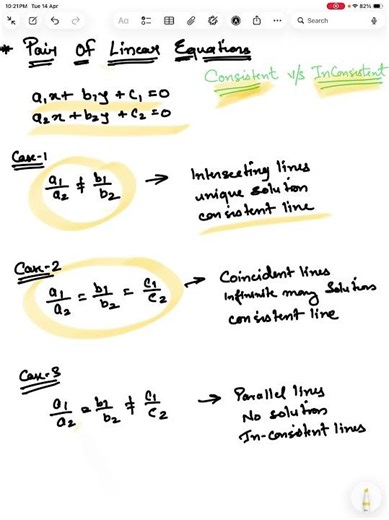 10:21PM Tue 14 Apr
82%
Aa
Search
* Pair Of Linear Equations
Consistent v/s InConsistent
a₁x + b₁y + c₁ = 0
a₂x + b₂y + c₂ = 0
Case-1
a₁/a₂ ≠ b₁/b₂ → Intersecting lines
unique solution
consistent line
Case-2
a₁/a₂ = b₁/b₂ = c₁/c₂ → Coincident lines
Infinite many Solutions
consistent line
Case-3
a₁/a₂ = b₁/b₂ ≠ c₁/c₂ → Parallel lines
No solution
In-consistent lines